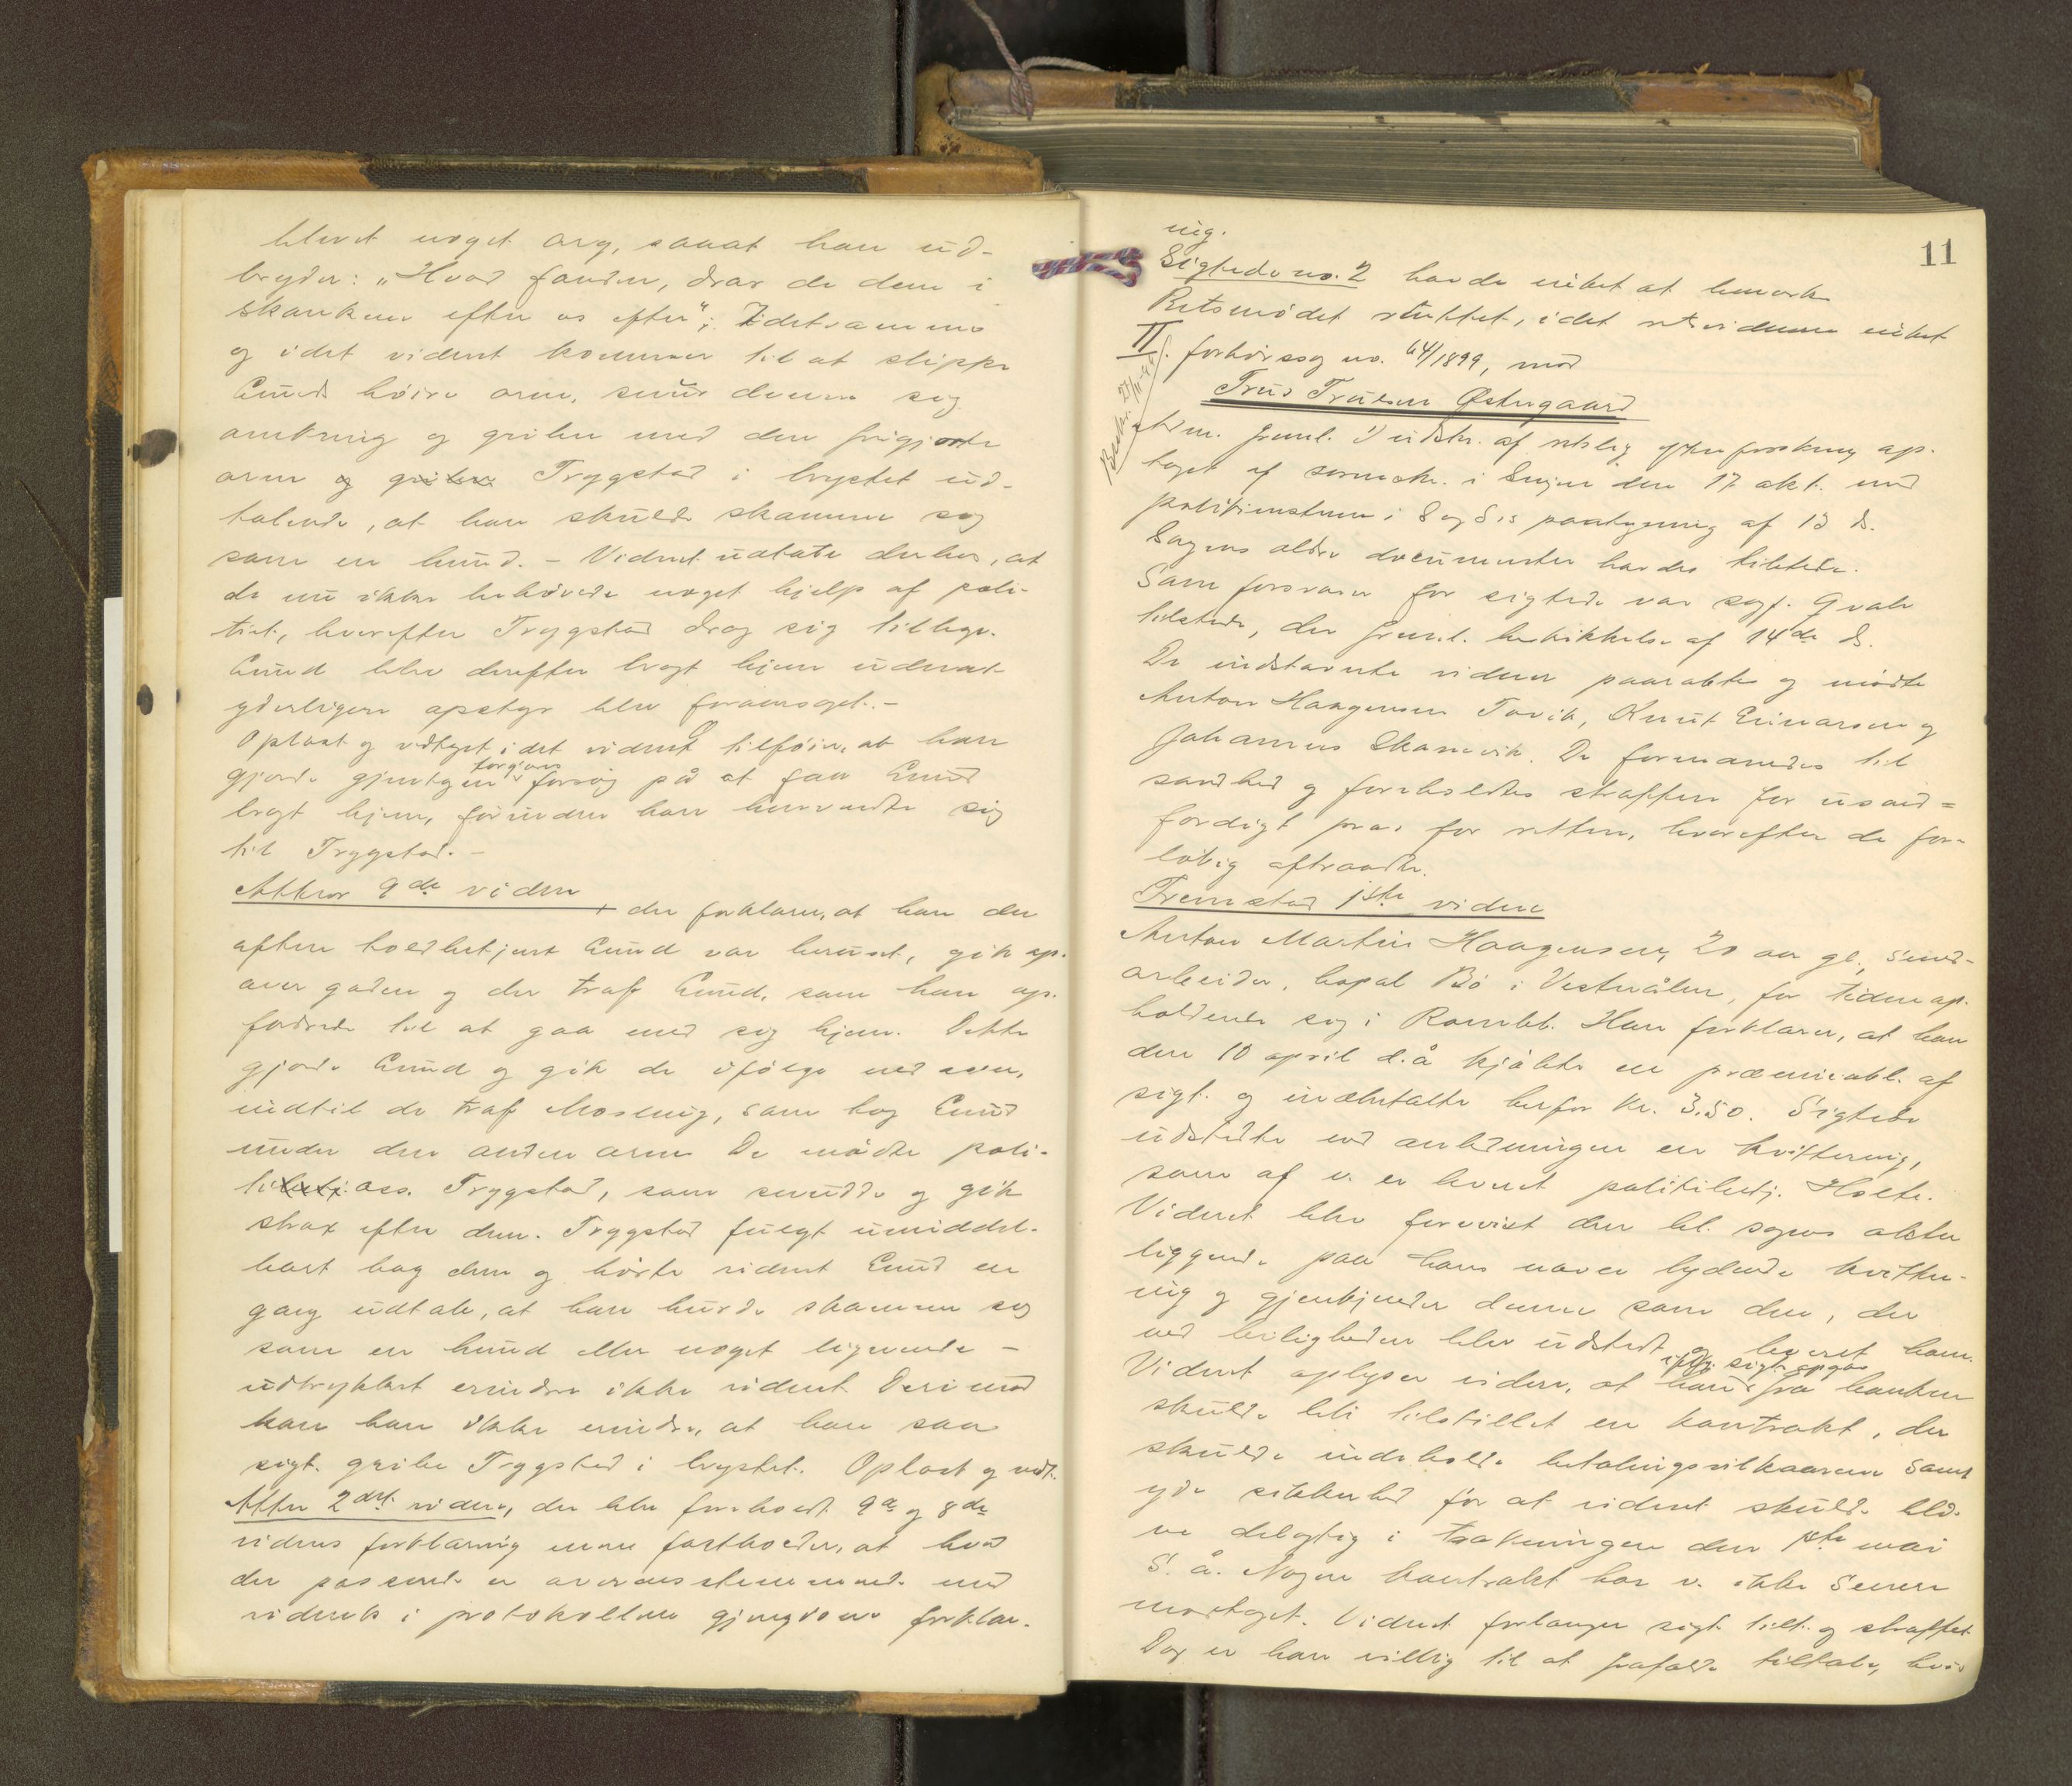 blevet noget arg, saaat han ud-
bryder: „Hvad fanden, drar de dem i
skanken efter os efter"; Idetsamme
og idet vidnet kommer til at slippe
Lund høire arm, snur denne sig
omkring og griber med den frigjorte
arm og griber Trygstad i brystet ud-
talende, at han skulde skamme sig
som en hund. - Vidnet udtalte derhos, at
de nu ikke behøvede noget hjelp af poli-
tiet, hvorefter Trygstad drog sig tilbage.
Lund blev derefter bragt hjem uden at
yderligere opstyr blev foraarsaget. -
Oplæst og vedtaget, idet vidnet tilføier, at han
gjorde gjentagende forgjæves forsøg på at faa Lund
bragt hjem, førinden han henvendte sig
til Trygstad. -
Atter 9de vidne, der forklarer, at han den
aften toldbetjent Lund var beruset, gik op-
over gaden og der traf Lund, som han op-
fordrede til at gaa med sig hjem. Dette
gjorde Lund og gik de ifølge nedover,
indtil de traf Mosling, som tog Lund
under den anden arm. De mødte poli-
tibetj. ass. Trygstad, som snudde og gik
strax efter dem. Trygstad fulgt umiddel-
bart bag dem og hørte vidnet Lund en
gang udtale, at han burde skamme sig
som en hund eller noget lignende -
udtrykket erindrer ikke vidnet. Derimod
kan han ikke erindre, at han saa
sigt. gribe Trygstad i brystet. Oplæst og vedt.
Atter 2det vidne, der blev foreholdt 9de og 8de
vidnes forklaring men fastholder, at hvad
der passerede er overensstemmende med
vidnets i protokollen gjengivne forklar-
11
ing.
Sigtede no. 2 havde intet at bemærke
Retsmødet sluttet, idet retsvidnerne intet
II. forhørssag no. 64/1899, mod
Truls Trulsen Østergaard
Beskr. 27/11-99
Adm. freml. 1) udskr. af retslig efterforskning op-
taget af sorenskr. i Senjen den 17 okt. med
politimesteren i S og T's paategning af 13 ds.
Sagens ældre documenter havdes tilstede.
Som forsvarer for sigtede var sagf. Qvale
tilstede, der freml. beskikkelse af 14de ds.
De indstævnte vidner paaraabtes og mødte
Anton Haagensen Tovik, Knut Einarsen og
Johannes Skanevik. De formanedes til
sandhed og foreholdtes straffen for usand-
færdigt præs. for retten, hvorefter de for-
løbig aftraadte.
Fremstod 1ste vidne
Anton Martin Haagensen, 20 aar gl., smed-
arbeider, bopæl Bø i Vesteraalen, for tiden op-
holdende sig i Rombk. Han forklarer, at han
den 10 april d. å kjøbte en præmieobl. af
sigt. og indbetalte herfor Kr. 3.50. Sigtede
udstedte ved anledningen en kvittering,
som af v. er leveret politibetj. Holte.
Vidnet blev forevist den bl. sagens akter
liggende paa hans navn lydende kvitte-
ring og gjenkjender denne som den, der
ved leiligheden blev udstedt og leveret ham.
Vidnet oplyser videre, at han ifølge sigt. opgav fra banken
skulde bli tilstillet en kontrakt, der
skulde indeholde betalingsvilkaarene samt
yde sikkerhed for at vidnet skulde bli-
ve delagtig i trækningen den 1ste mai
s. å. Nogen kontrakt har v. ikke senere
modtaget. Vidnet forlanger sigt. tilt. og straffet.
Dog er han villig til at frafalde tiltale, hvis